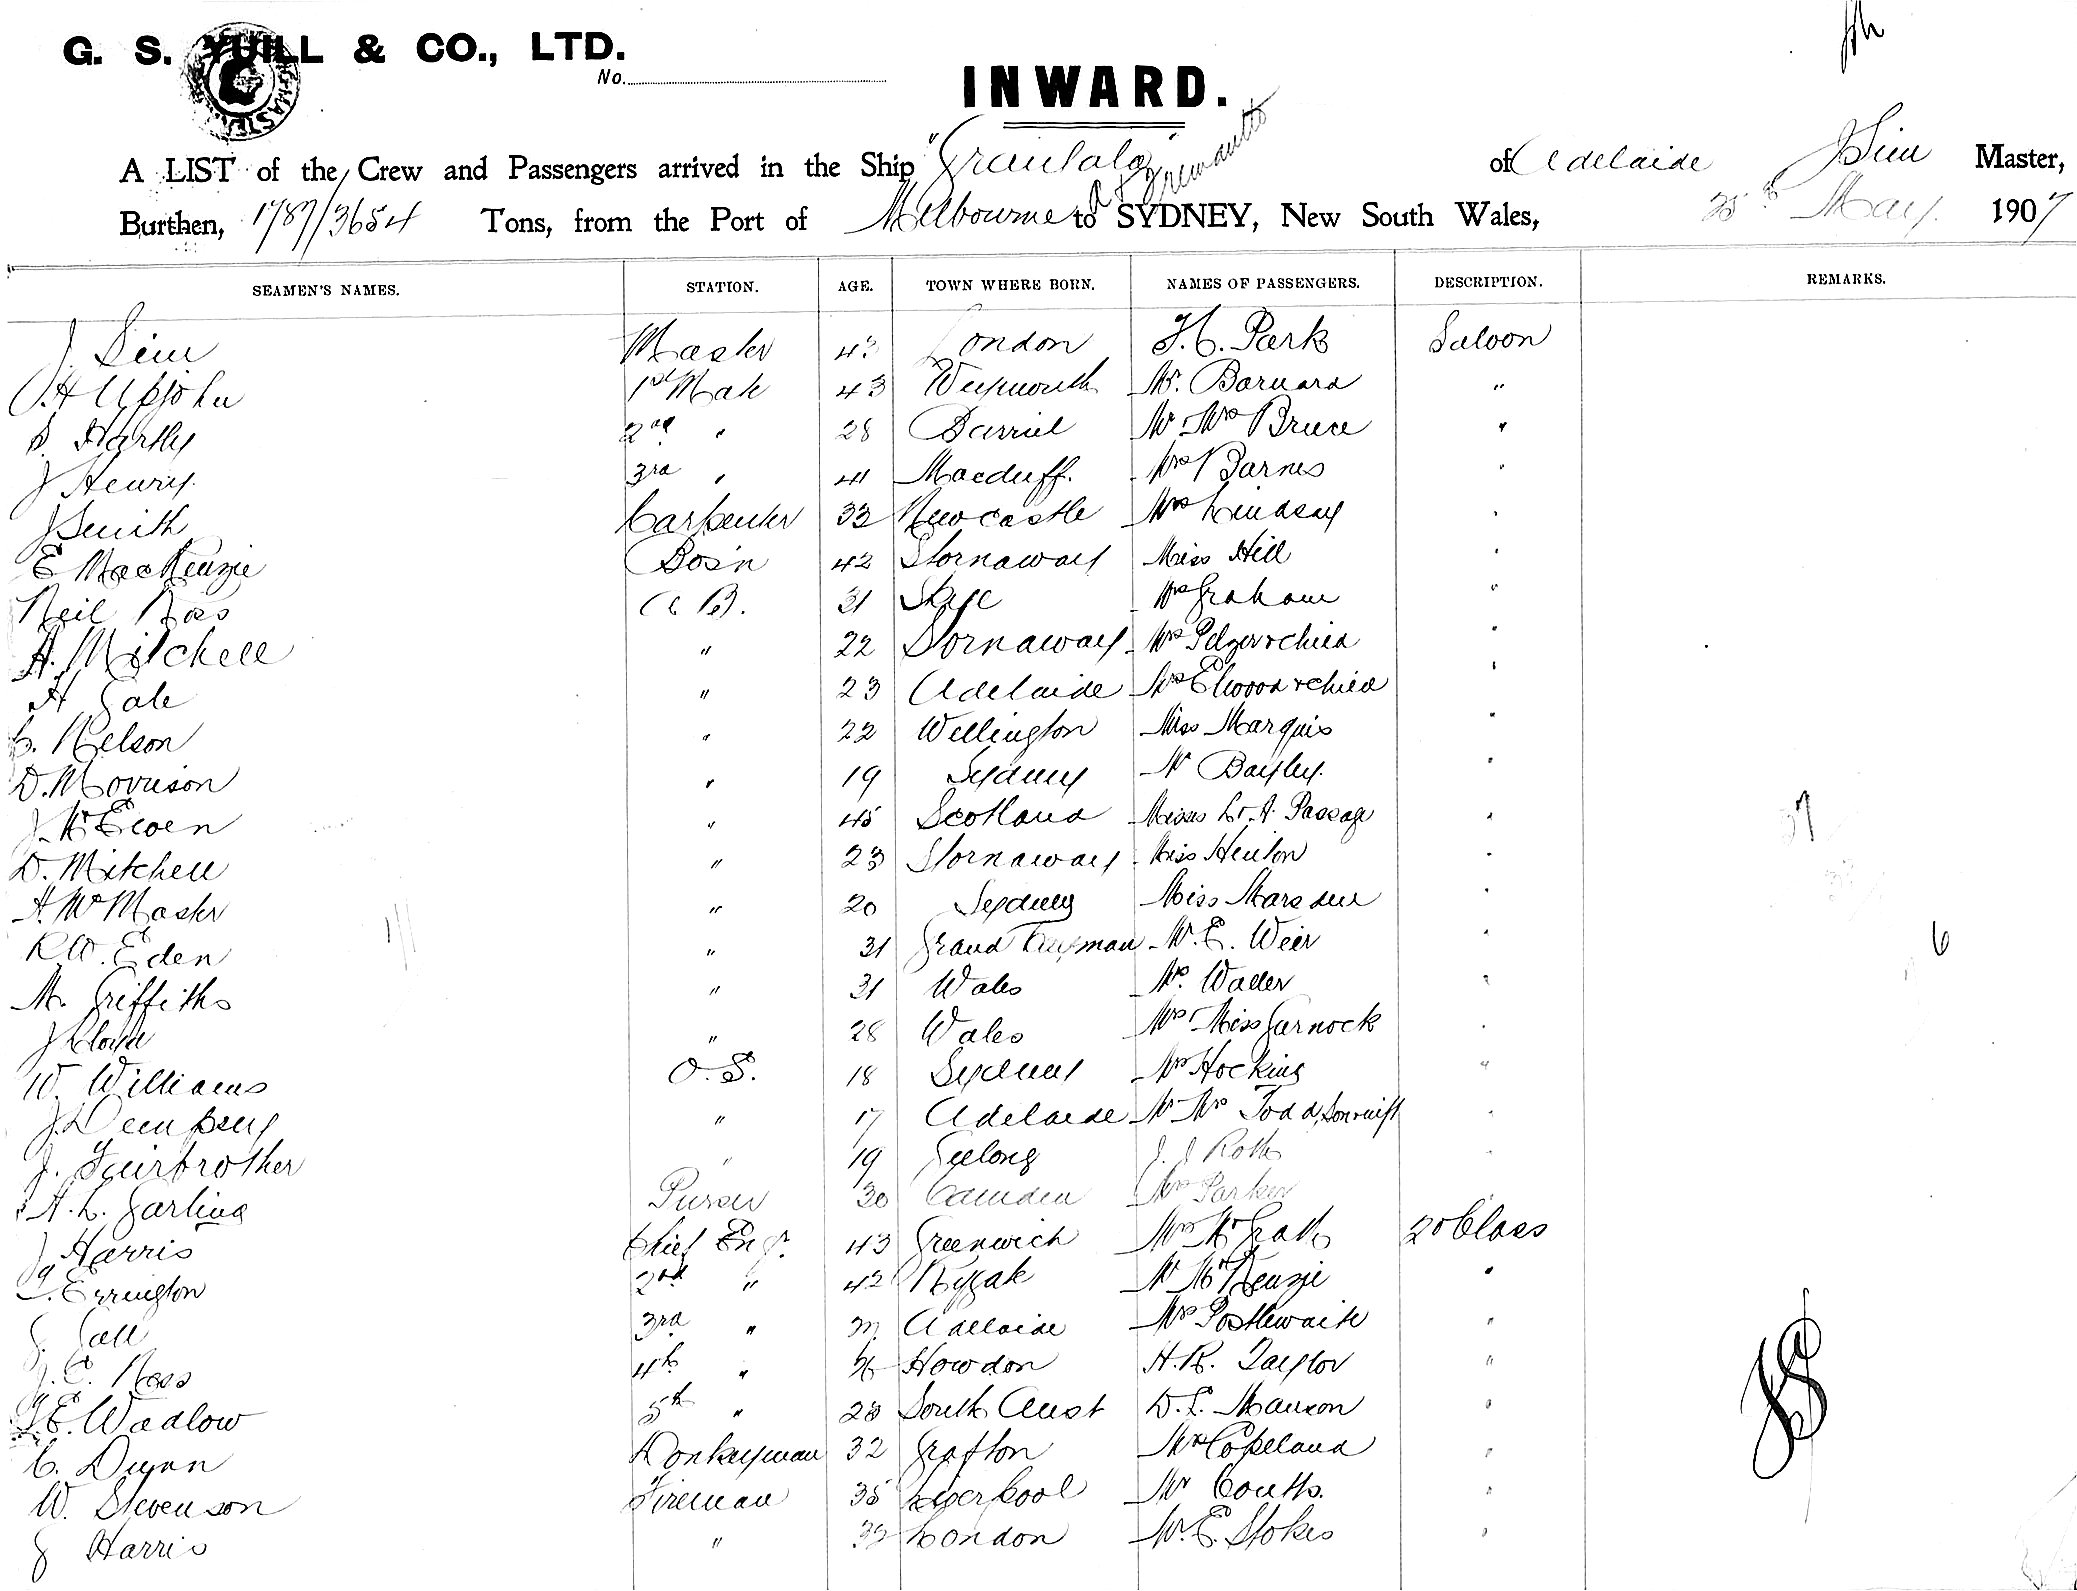 G. S. YUILL & CO., LTD.
No.
INWARD.
A LIST of the Crew and Passengers arrived in the Ship "Grantala" of Adelaide J Sim Master,
Burthen, 1787/3654 Tons, from the Port of Melbourne & Fremantle to SYDNEY, New South Wales, 25th May. 1907
SEAMEN'S NAMES. STATION. AGE. TOWN WHERE BORN. NAMES OF PASSENGERS. DESCRIPTION. REMARKS.
J Sim Master 43 London F. C. Park Saloon
A Upjohn 1st Mate 43 Weymouth Mr. Barnard "
S. Hartly 2nd " 28 Mr Mrs Bruce "
J Henry. 3rd " 41 Macduff. Mrs Barnes "
J Smith Carpenter 33 Newcastle Mrs Lindsay "
E MacKenzie Bosn 42 Stornaway Miss Hill "
Neil Ross A B. 31 Skye Mrs Graham "
A. Mitchell " 22 Stornaway Mrs Pelzer & child "
A Gale " 23 Adelaide Mrs Elwood & child "
C. Nelson " 22 Wellington Miss Marquis "
D. Morrison " 19 Sydney Mr Bayley. "
J. McEwen " 45 Scotland Misses L & A. Passage "
D. Mitchell " 23 Stornaway Miss Henton "
A. McMaster " 20 Sydney Miss Marsden "
R W. Eden " 31 Grand Cayman Mr. E. Weir "
M. Griffiths " 31 Wales Mr. Waller "
J " 28 Wales Mrs Miss Garnock "
W. Williams O. S. 18 Sydney Mrs Hocking "
J. Dempsey " 17 Adelaide Mr Mrs Todd, Son & "
J. Fairbrother " 19 Geelong J. J Roth "
A. L. Garling Purser 30 Camden Mrs Parker
J Harris Chief Engr. 43 Greenwich Mrs McGrath 2d Class
Errington 2nd " 42 Mr McKenzie "
J. Gall 3rd " Adelaide Mrs Postlewaite "
J. C. Ross 4th " Howdon H. R. Taylor "
E. Wadlow 5th " 28 South Aust D. L. Manson "
C. Dunn Donkeyman 32 Grafton Mr Copeland "
W. Stevenson Fireman 35 Liverpool Mr Coutts. "
J Harris " 33 London Mr. E. Stokes "